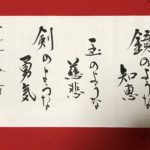 鏡のような
知恵
玉のような
慈悲
剣のような
勇気